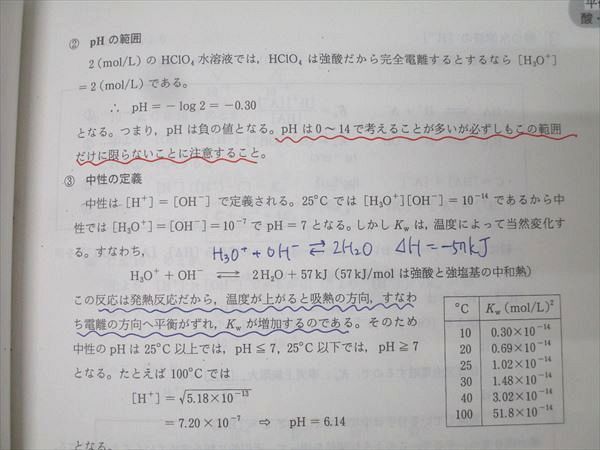 ② pH の範囲
2(mol/L) の HClO₄ 水溶液では，HClO₄ は強酸だから完全電離するとするなら [H₃O⁺]
＝2(mol/L) である。
∴ pH＝－log 2＝－0.30
となる。つまり，pH は負の値となる。pH は 0～14 で考えることが多いが必ずしもこの範囲
だけに限らないことに注意すること。
③ 中性の定義
中性は [H⁺]＝[OH⁻] で定義される。25°C では [H₃O⁺][OH⁻]＝10⁻¹⁴ であるから中
性では [H₃O⁺]＝[OH⁻]＝10⁻⁷ で pH＝7 となる。しかし Kw は，温度によって当然変化す
る。すなわち，
H₃O⁺ + OH⁻ ⇄ 2H₂O ΔH = -57kJ
H₃O⁺＋OH⁻ ⇄ 2H₂O＋57 kJ (57 kJ/mol は強酸と強塩基の中和熱)
この反応は発熱反応だから，温度が上がると吸熱の方向，すなわ
ち電離の方向へ平衡がずれ，Kw が増加するのである。そのため
中性の pH は 25°C 以上では，pH≦7，25°C 以下では，pH≧7
となる。たとえば 100°C では
[H⁺]＝√5.18×10⁻¹³
＝7.20×10⁻⁷ ⇨ pH＝6.14
となる。
°C Kw(mol/L)²
10 0.30×10⁻¹⁴
20 0.69×10⁻¹⁴
25 1.02×10⁻¹⁴
30 1.48×10⁻¹⁴
40 3.02×10⁻¹⁴
100 51.8×10⁻¹⁴